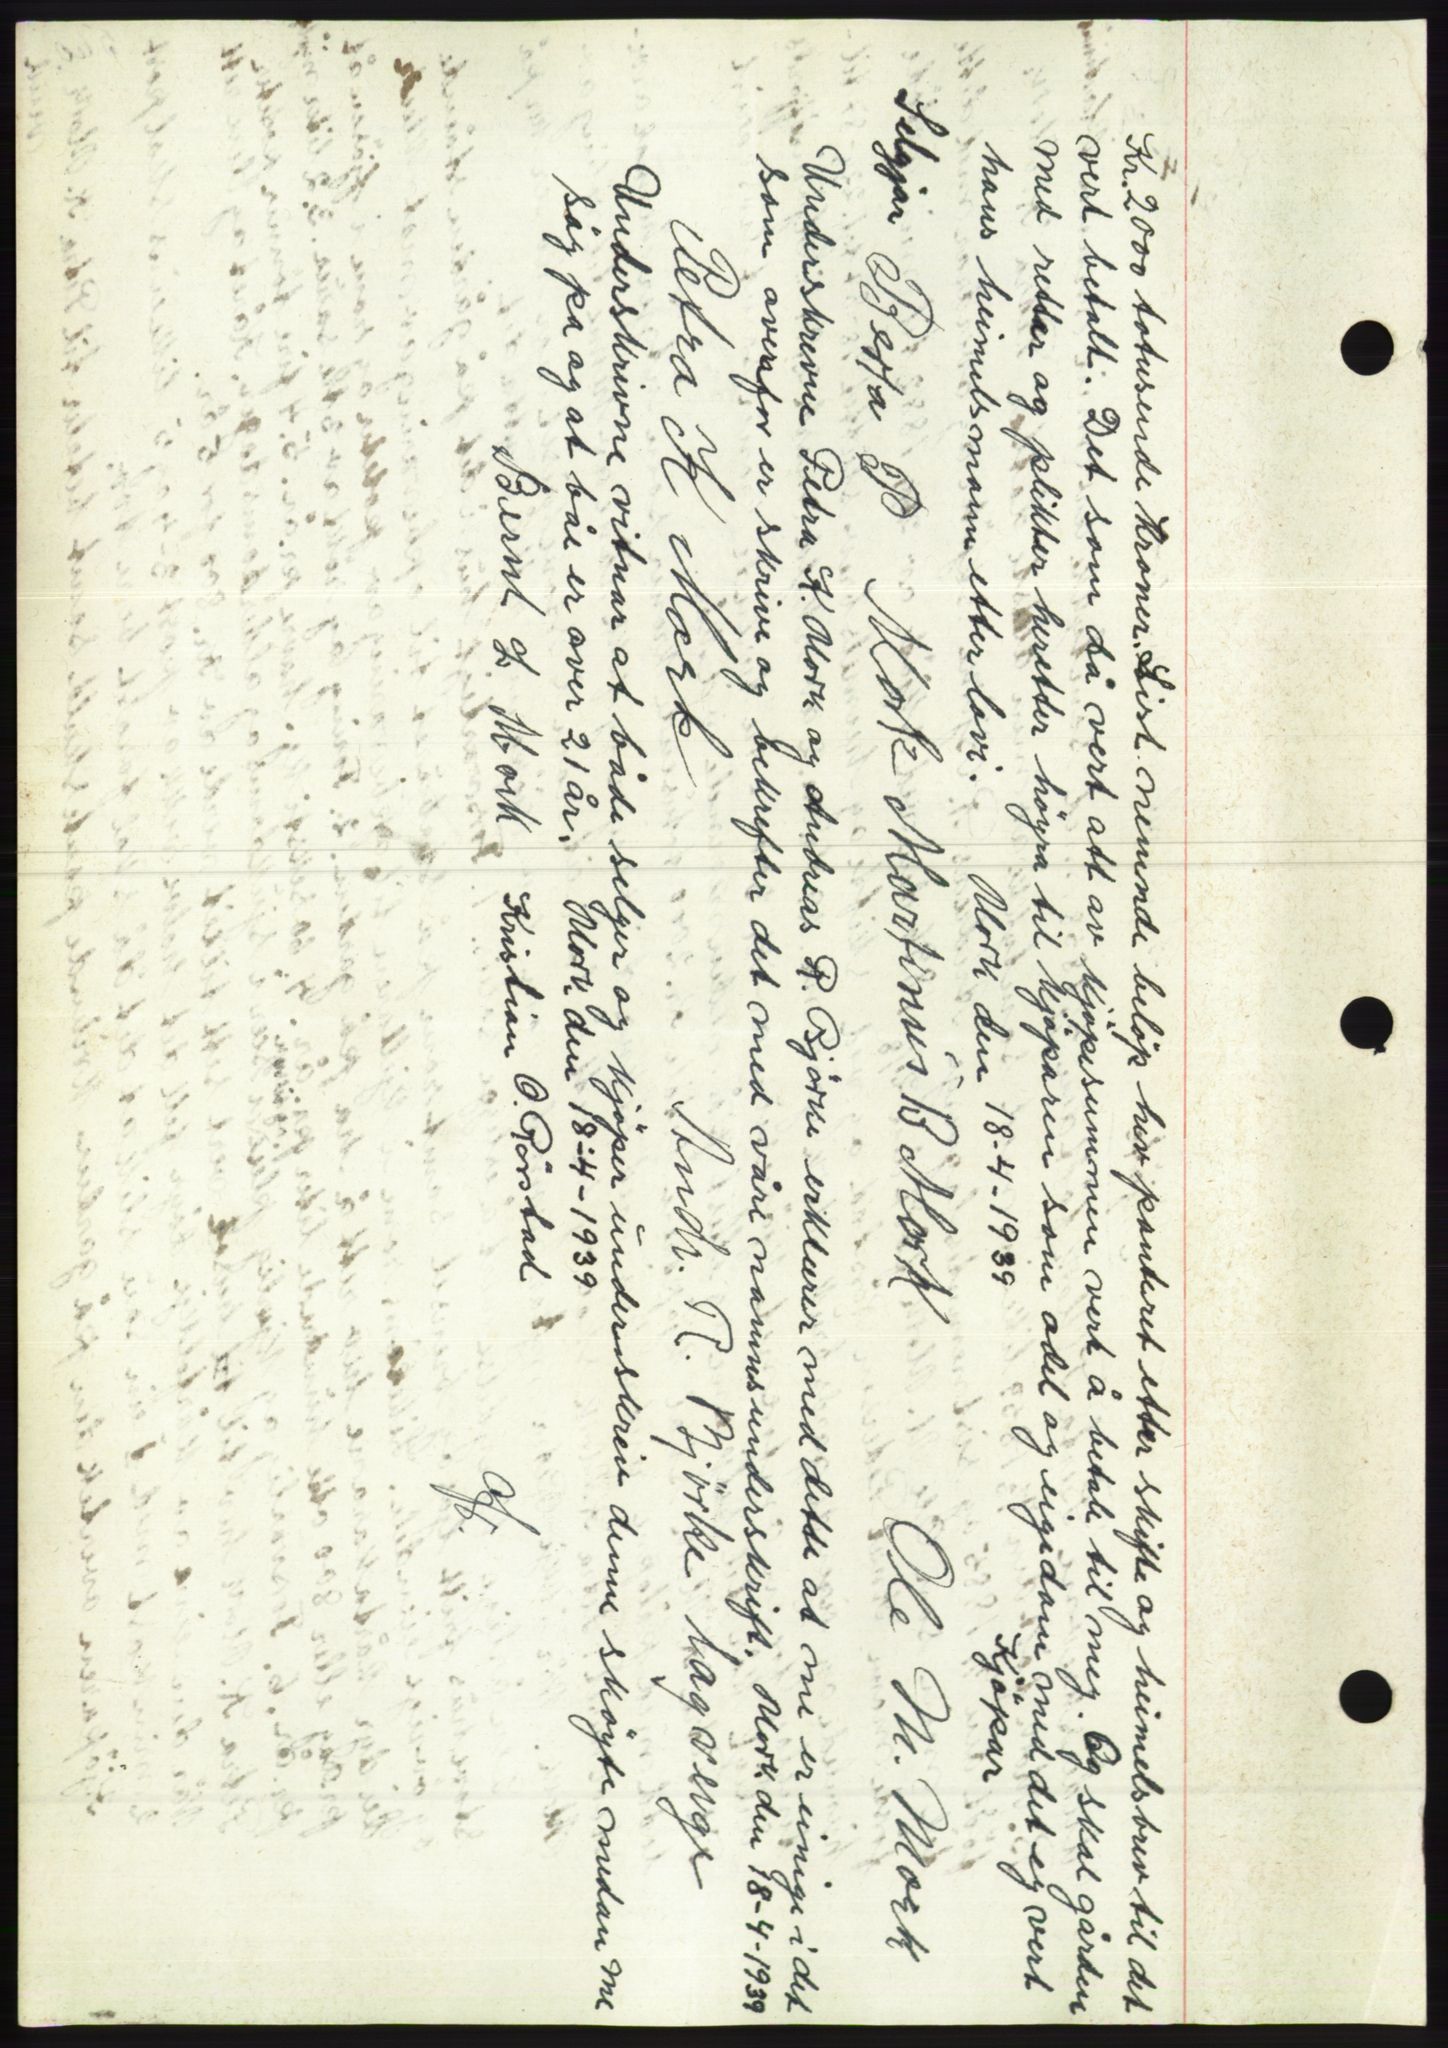 Kr. 2000 totusunde Kroner. Sist nemnde beløp hev panteret etter skifte og heimelsbrev til det
vert betalt. Det som då vert att av kjöpesummen vert å betale til meg. Og skal gården
med rettar og plikter heretter högra til kjöparen som odel og eigedom med det eg vert
hans heimelsmann etter lovi.
Mork den 18-4-1939
Kjöpar
Selgjar Berta B Mork Martinus B Mork Ole M. Mork
Underskrevne Petra A. Mork og Andreas R. Björke erklærer med dette at me er einige i det
som avenfor er skrive og bekrefter det med våre namnsunderskrift. Mork den 18-4-1939
Petra A Mork Andr. R. Björke lagverge
Underskrivne vitnar at både selger og kjöper underskreiv denne sköyte medan me
såg på og at båe er over 21 år. Mork den 18-4-1939
Bernt L Mork Kristian O. Rörstad